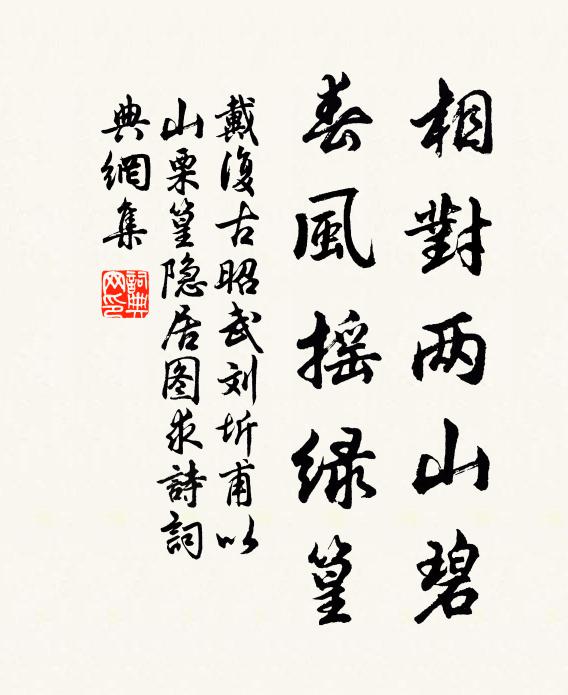 相對两山碧
春風摇緑篁
戴復古昭武刘圻甫以
山栗篁隐居图求詩詞
典網集
詞典网印